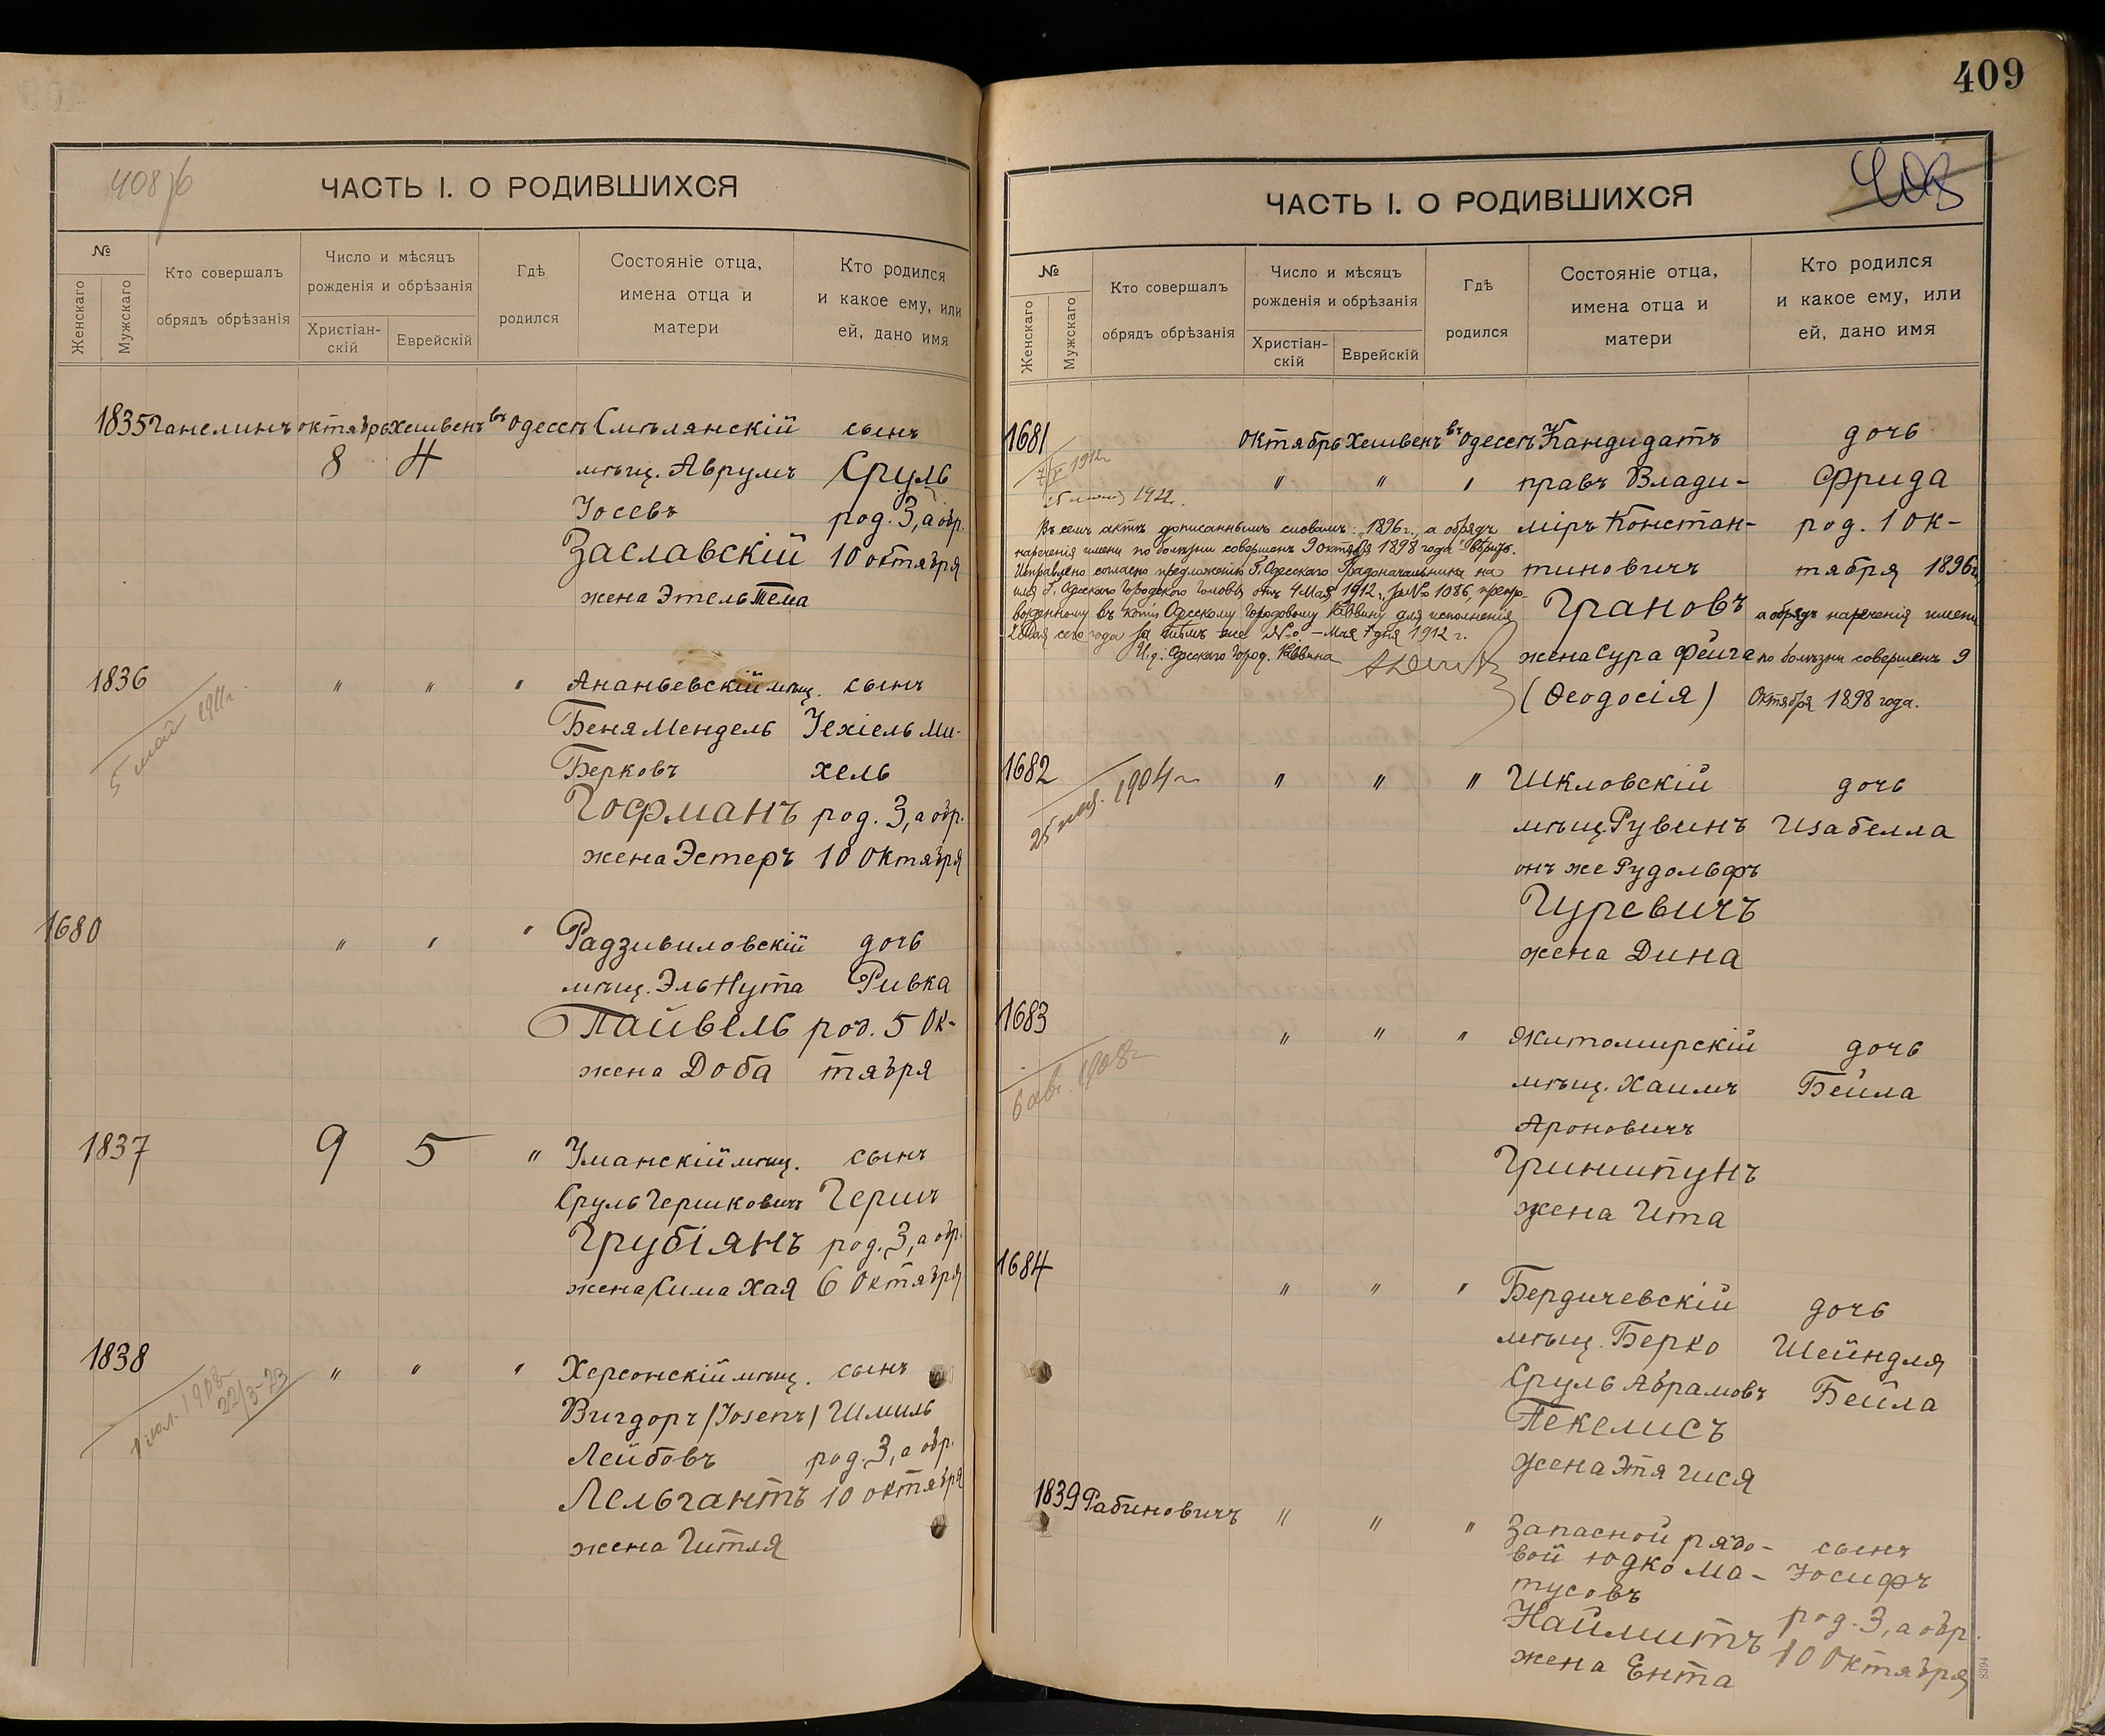 408 об
ЧАСТЬ I. О РОДИВШИХСЯ
№
Женскаго
Мужскаго
Кто совершалъ
обрядъ обрѣзанія
Число и мѣсяцъ
рожденія и обрѣзанія
Христіан-
скій
Еврейскій
Гдѣ
родился
Состояніе отца,
имена отца и
матери
Кто родился
и какое ему, или
ей, дано имя
1835 Ганелинъ октябрь Хешвенъ въ Одессѣ Смѣлянскій сынъ
8 4 мѣщ. Аврумъ Сруль
Іосевъ род. 3, а обр.
Заславскій 10 октября
жена Этель Тема
1836 " " " Ананьевскій мѣщ. сынъ
5 май 1911 г.
Беня Мендель Іехіель Ми-
Берковъ хель
Гофманъ род. 3, а обр.
жена Эстеръ 10 Октября
1680 " " " Радзивиловскій дочь
мѣщ. Эль Нута Ривка
Пайвель род. 5 Ок-
жена Доба тября
1837 9 5 " Уманскій мѣщ. сынъ
Сруль Гершковичъ Гершъ
Грубіянъ род. 3, а обр.
жена Сима Хая 6 Октября
1838 " " " Херсонскій мѣщ. сынъ
1908
22/3-23
Вигдоръ /Іозепъ/ Шмиль
Лейбовъ род. 3, а обр.
Лельгантъ 10 октября
жена Гитля
409
408
ЧАСТЬ I. О РОДИВШИХСЯ
№
Женскаго
Мужскаго
Кто совершалъ
обрядъ обрѣзанія
Число и мѣсяцъ
рожденія и обрѣзанія
Христіан-
скій
Еврейскій
Гдѣ
родился
Состояніе отца,
имена отца и
матери
Кто родился
и какое ему, или
ей, дано имя
1681 октябрь Хешвенъ въ Одессѣ Кандидатъ дочь
7/V 1912 г
" " " правъ Влади- Фрида
1922.
міръ Констан- род. 1 ок-
тиновичъ тября 1896 г.,
Грановъ а обрядъ нареченія имени
жена Сура Фейга по болѣзни совершенъ 9
(Ѳеодосія) Октября 1898 года.
Въ семъ актѣ дописаннымъ словамъ: "1896 г., а обрядъ
нареченія имени по болѣзни совершенъ 9 октября 1898 года" вѣрить.
Исправлено согласно предложенію Г. Одесскаго Градоначальника на
имя Г. Одесскаго Городского Головы отъ 4 Мая 1912 г. за № 1086, препро-
вожденному въ копіи Одесскому Городовому Раввину для исполненія
Мая сего года за тѣмъ же №. — Мая 7 дня 1912 г.
И. д. Одесскаго Город. Раввина
1682 " " " Шкловскій дочь
25 1904 г
мѣщ. Рувинъ Изабелла
онъ же Рудольфъ
Гуревичъ
жена Дина
1683 " " " Житомирскій дочь
6 авг. 1908 г
мѣщ. Хаимъ Бейла
Ароновичъ
Гриншпунъ
жена Ита
1684 " " " Бердичевскій дочь
мѣщ. Берко Шейндля
Сруль Абрамовъ Бейла
Пекелисъ
жена Этя Гися
1839 Рабиновичъ " " " Запасной рядо- сынъ
вой Юдко Ма- Іосифъ
тусовъ
Наймитъ род. 3, а обр.
жена Ента 10 Октября
8394